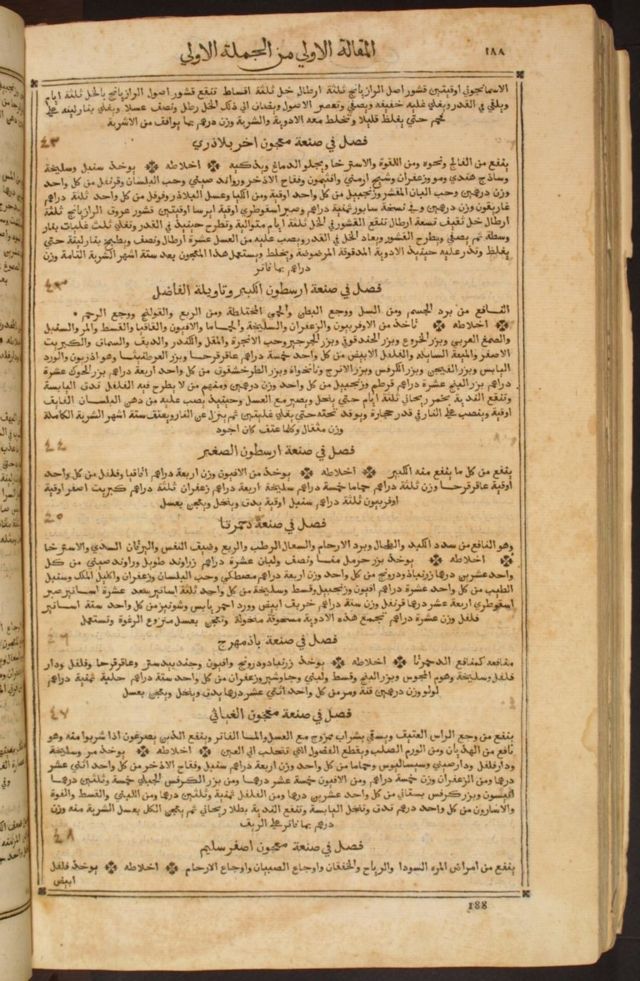 ١٨٨
المقالة الاولي من الجملة الاولي
الاسمانجوني اوقيتين قشور اصل الرازيانج ثلثة ارطال خل ثلثة اقساط تنقع قشور اصول الرازيانج بالخل ثلثة ايام
ويلقي في القدر ويغلي غليه خفيفه ويصفي وتعصر الاصول ويلقيان الي ذلك الخل رطل ونصف عسلا ويغلي بنار لينة علي
جمر حتي يغلظ قليلا وتخلط معه الادوية والشربة وزن درهم بما يوافق من الاشربة
فصل في صنعة معجون اخر بلاذري
ينفع من الفالج ونحوه ومن اللقوة والاسترخا ويجلو الدماغ ويذكيه اخلاطه يوخذ سنبل وسليخة
وساذج هندي ومو وزعفران وشيح ارمني وافتيمون وفقاح الاذخر وراوند صيني وحب البلسان وقرنفل من كل واحد
وزن درهمين وحب البان المقشر وزنجبيل من كل واحد اوقية ومن اكليا وعسل البلاذر وفوفل من كل واحد ثلثة دراهم
غاريقون وزن درهمين وفي نسخة سابور ثمنية دراهم وصبر اسقوطري اوقية ايرسا اوقيتين قشور عروق الرازيانج ثلثة
ارطال خل ثقيف تسعة ارطال تنقع القشور في الخل ثلثة ايام متوالية وتطرح حينيذ في القدر وتغلي ثلث غليات بنار
وسطة ثم يصفي ويطرح القشور ويعاد الخل في القدر ويصب عليه من العسل عشرة ارطال ونصف ويطبخ بنار لينة حتي
يغلظ وتذر عليه حينيذ الادوية المدقوقة المرضوضة ويخلط ويستعمل هذا المعجون بعد ستة اشهر الشربة التامة وزن
درهم بما فاتر
فصل في صنعة ارسطون الكبير وتاويلة الفاضل
النافع من برد الجسم ومن السل ووجع البطن والحمي المختلطة ومن الربع والقولنج ووجع الرحم
اخلاطه تاخذ من الاوفربيون والزعفران والسليخة والحماما والافيون والقاقيا والقسط والمر والسنبل
والصمغ العربي وبزر الخروع وبزر الحندقوقي وبزر الجرجير وحب الانجرة والمقل والكندر والدبق والسماق والكبريت
الاصفر والميعة السايله والفلفل الابيض من كل واحد خمسة دراهم عاقرقرحا وبزر العرطنيثا وهو اذريون والورد
اليابس وبزر الفيجن وبزر الكرفس وبزر الاترج ونانخواة وبزر الطرخشقون من كل واحد اربعة دراهم بزر الحوك عشرة
دراهم بزر البنج عشرة دراهم قرطم وزنجبيل من كل واحد وزن درهمين ومنهم من لا يطرح فيه الفلفل تدق اليابسة
وتنقع اللدنة بخمر ريحاني ثلثة ايام حتي ينحل ويصير مع العسل وحينيذ يصب عليه من دهن البلسان الفايق
اوقية وينصب علي النار في قدر حجارة ويوقد تحته حتي يغلي غليتين ثم ينزل عن النار ويعتق ستة اشهر الشربة الكاملة
وزن مثقال وكلما عتق كان اجود
فصل في صنعة ارسطون الصغير
ينفع من كل ما ينفع منه الكبير اخلاطه يوخذ من الافيون وزن اربعة دراهم اقاقيا وفلفل من كل واحد
اوقية عاقرقرحا وزن ثلثة دراهم حماما خمسة دراهم سليخة اربعة دراهم زعفران ثلثة دراهم كبريت اصفر اوقية
اوفربيون ثلثة دراهم سنبل اوقية يدق وينخل ويعجن بعسل
فصل في صنعة دحمرتا
وهو النافع من سدد الكبد والطحال وبرد الارحام والسعال الرطب والربع وضيق النفس واليرقان السدي والاسترخا
اخلاطه يوخذ بزر حرمل منا ونصف ولبان عشرة دراهم زراوند طويل وراوند صيني من كل
واحد عشرين درهما زرنباذ ودرونج من كل واحد وزن اربعة دراهم مصطكي وحب البلسان وزعفران واكليل الملك وسنبل
الطيب من كل واحد عشرة دراهم افيون وزنجبيل وقسط وسليخة من كل واحد ثلثة اساتير سعد عشرة اساتير صبر
اسقوطري اربعة عشر درهما قرنفل وزن ستة دراهم خربق ابيض وورد احمر يابس وشونيز من كل واحد ستة اساتير
فلفل وزن عشرة دراهم تجمع هذه الادوية مسحوقة منخولة وتعجن بعسل منزوع الرغوة وتستعمل
فصل في صنعة باذمهرج
منافعه كمنافع الدحمرتا اخلاطه يوخذ زرنباد ودرونج وافيون وجندبيدستر وعاقرقرحا وفلفل ودار
فلفل وسليخة وهوم المجوس وبزر البنج وقسط ولبني وجاوشير وزعفران من كل واحد ستة دراهم حلبة ثمنية دراهم
لولو وزن درهمين قنة ومر من كل واحد اثني عشر درهما يدق وينخل ويعجن بعسل
فصل في صنعة معجون الغياثي
ينفع من وجع الراس العتيق ويسقي بشراب ممزوج مع العسل والما الفاتر وينفع الذين يصرعون اذا شربوا منه وهو
نافع من الهذيان ومن الورم الصلب ويقطع الفضول التي تنصب الي العين اخلاطه يوخذ مر وسليخة
ودار فلفل ودارصيني وسيساليوس وحماما من كل واحد وزن اربعة دراهم سنبل وفقاح الاذخر من كل واحد اثني عشر
درهما ومن الزعفران وزن خمسة دراهم ومن الافيون خمسة عشر درهما ومن بزر الكرفس الجبلي خمسة وثلثين درهما
انيسون وبزر كرفس بستاني من كل واحد عشرين درهما ومن الفلفل ثمنية وثلثين درهما ومن اللبني والقسط والفوة
والاسارون من كل واحد درهم تدق وتنخل اليابسة وتنقع اللدنة بطلا ريحاني ثم يعجن الكل بعسل الشربة منه وزن
درهم بما فاتر علي الريق
فصل في صنعة معجون اصفر سليم
ينفع من امراض المرة السودا والرياح والخفقان واوجاع الصبيان واوجاع الارحام اخلاطه يوخذ فلفل
ابيض
188